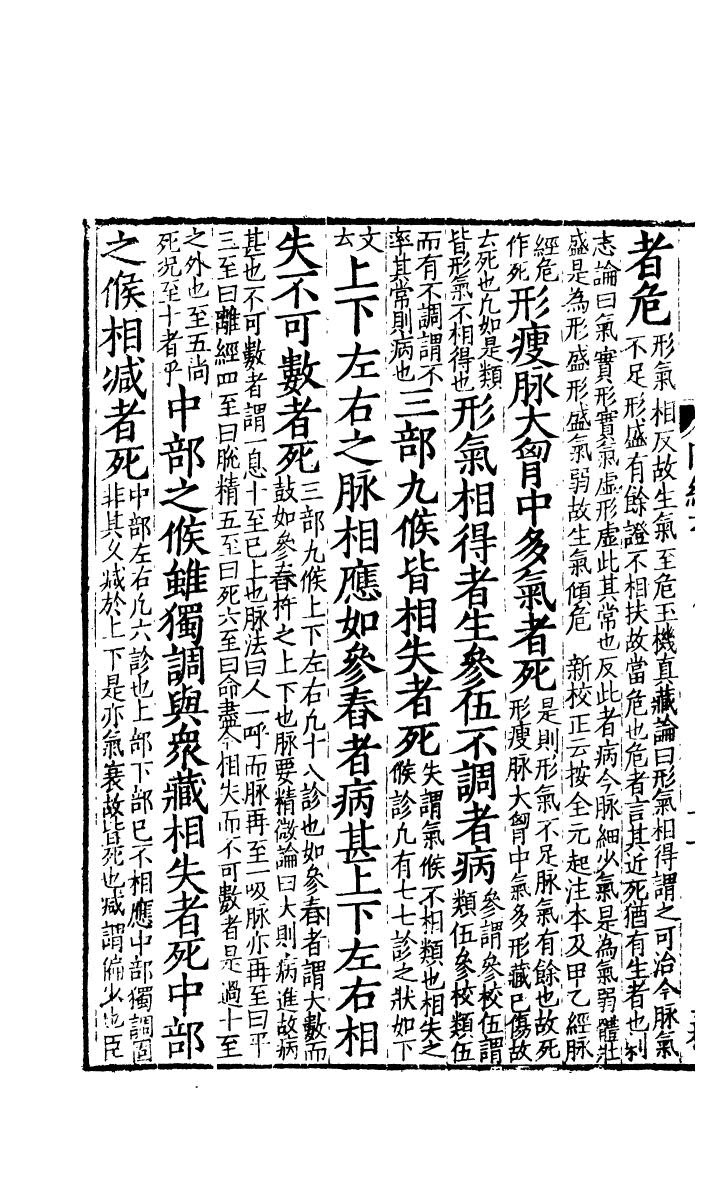 者危形氣相反故生氣至危玉機真藏論曰形氣相得謂之可治今脉氣
不足形盛有餘證不相扶故當危也危者言其近死猶有生者也刺
志論曰氣實形實氣虛形虛此其常也反此者病今脉細少氣是為氣弱體壮
盛是為形盛形盛氣弱故生氣傾危　新校正云按全元起注本及甲乙經脉
經危
作死
形瘦脉大胷中多氣者死是則形氣不足脉氣有餘也故死
形瘦脉大胷中氣多形藏已傷故
云死也凡如是類
皆形氣不相得也
形氣相得者生參伍不調者病參謂參校伍謂
類伍參校類伍
而有不調謂不
率其常則病也
三部九候皆相失者死失謂氣候不相類也相失之
候診凡有七七診之狀如下
文
云
上下左右之脉相應如參舂者病甚上下左右相
失不可數者死三部九候上下左右凡十八診也如參舂者謂大數而
鼓如參舂杵之上下也脉要精微論曰大則病進故病
甚也不可數者謂一息十至已上也脉法曰人一呼而脉再至一吸脉亦再至曰平
三至曰離經四至曰脫精五至曰死六至曰命盡今相失而不可數者是過十至
之外也至五尚
死况至十者乎
中部之候雖獨調與衆藏相失者死中部
之候相减者死中部左右凡六診也上部下部已不相應中部獨調固
非其久减於上下是亦氣衰故皆死也减謂偏少也臣